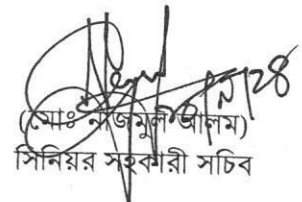 (মোঃ নাজমুল আলম)
সিনিয়র সহকারী সচিব